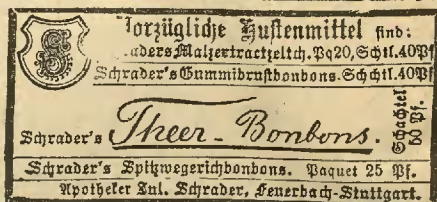 Vorzügliche Hustenmittel sind:
Schrader's Malzextractzeltch. Pq 20, Schtl. 40 Pf
Schrader's Gummibrustbonbons. Schtl. 40 Pf
Schrader's Theer-Bonbons. Schachtel 50 Pf.
Schrader's Spitzwegerichbonbons. Paquet 25 Pf.
Apotheker Jul. Schrader, Feuerbach-Stuttgart.